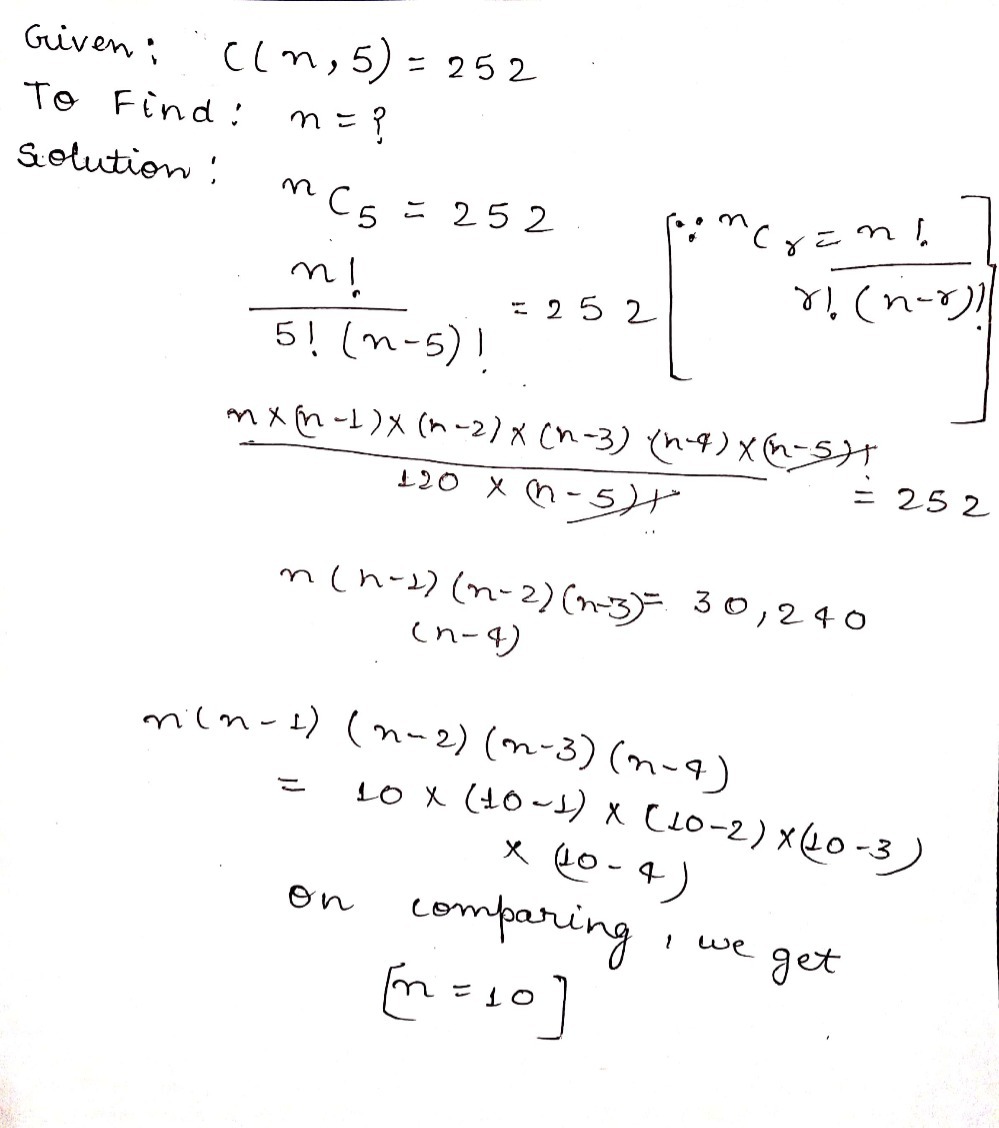 Given: C(n,5) = 252
To Find: n = ?
Solution:
ⁿC₅ = 252 [∵ ⁿCᵣ = n! / r! (n-r)!]
n! / 5! (n-5)! = 252
n × (n-1) × (n-2) × (n-3) (n-4) × (n-5)! / 120 × (n-5)! = 252
n (n-1) (n-2) (n-3) = 30,240
(n-4)
n (n-1) (n-2) (n-3) (n-4)
= 10 × (10-1) × (10-2) × (10-3)
× (10-4)
on comparing, we get
[n = 10]